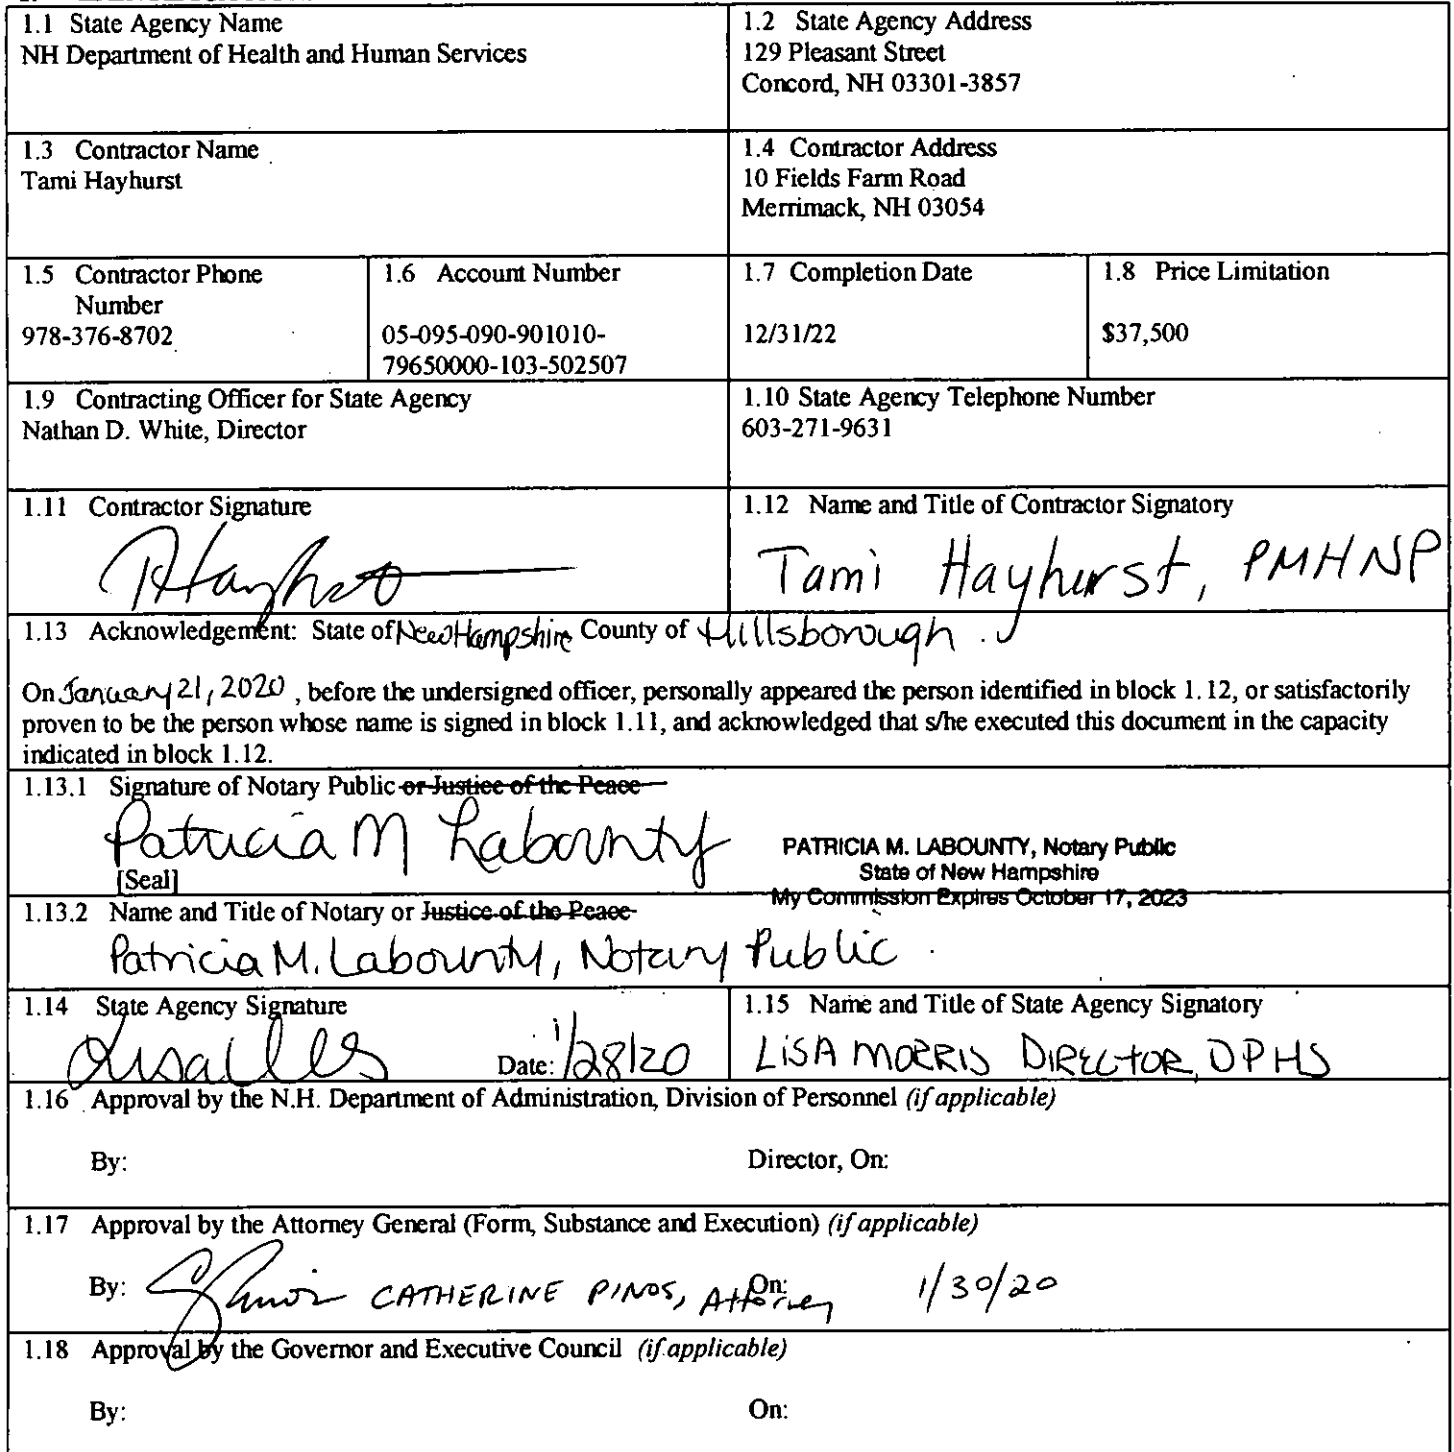 1.1 State Agency Name
NH Department of Health and Human Services
1.2 State Agency Address
129 Pleasant Street
Concord, NH 03301-3857
1.3 Contractor Name
Tami Hayhurst
1.4 Contractor Address
10 Fields Farm Road
Merrimack, NH 03054
1.5 Contractor Phone
Number
978-376-8702
1.6 Account Number
05-095-090-901010-
79650000-103-502507
1.7 Completion Date
12/31/22
1.8 Price Limitation
$37,500
1.9 Contracting Officer for State Agency
Nathan D. White, Director
1.10 State Agency Telephone Number
603-271-9631
1.11 Contractor Signature
1.12 Name and Title of Contractor Signatory
Tami Hayhurst, PMHNP
1.13 Acknowledgement: State of New Hampshire County of Hillsborough
On January 21, 2020, before the undersigned officer, personally appeared the person identified in block 1.12, or satisfactorily
proven to be the person whose name is signed in block 1.11, and acknowledged that s/he executed this document in the capacity
indicated in block 1.12.
1.13.1 Signature of Notary Public or Justice of the Peace
Patricia M Labounty
[Seal]
PATRICIA M. LABOUNTY, Notary Public
State of New Hampshire
My Commission Expires October 17, 2023
1.13.2 Name and Title of Notary or Justice of the Peace
Patricia M. Labounty, Notary Public
1.14 State Agency Signature
Date: 1/28/20
1.15 Name and Title of State Agency Signatory
LISA MORRIS DIRECTOR, DPHS
1.16 Approval by the N.H. Department of Administration, Division of Personnel (if applicable)
By:
Director, On:
1.17 Approval by the Attorney General (Form, Substance and Execution) (if applicable)
By: CATHERINE PINOS, Attorney On: 1/30/20
1.18 Approval by the Governor and Executive Council (if applicable)
By:
On: